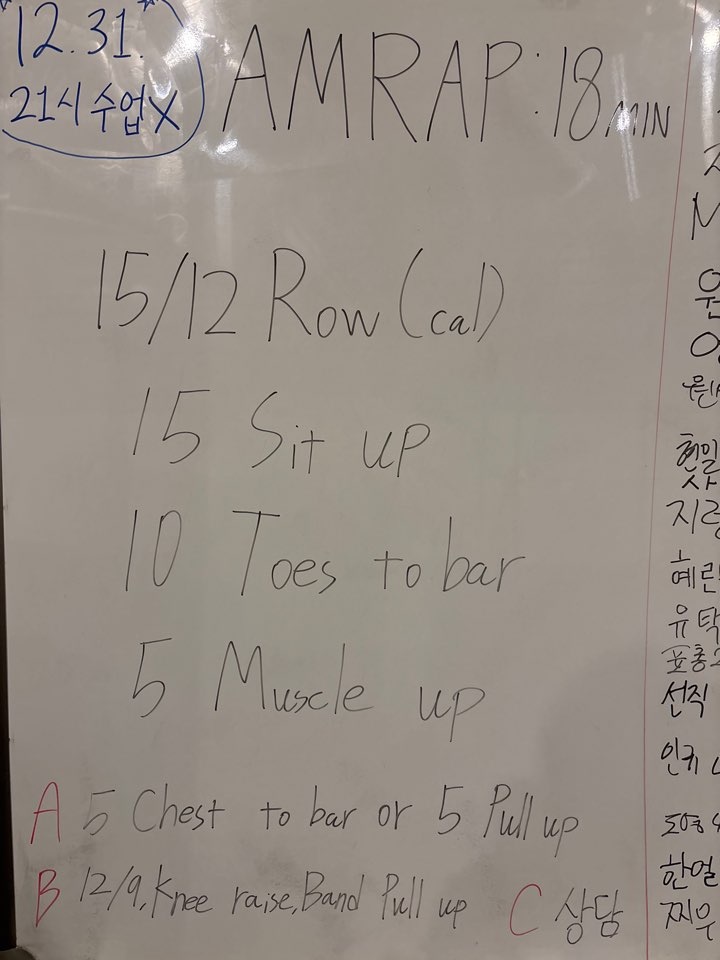 12.31.
21시 수업X
AMRAP:18MIN
15/12 Row (cal)
15 Sit up
10 Toes to bar
5 Muscle up
A 5 Chest to bar or 5 Pull up
B 12/9, Knee raise, Band Pull up C 상담
혜린
선직
한얼
찌우